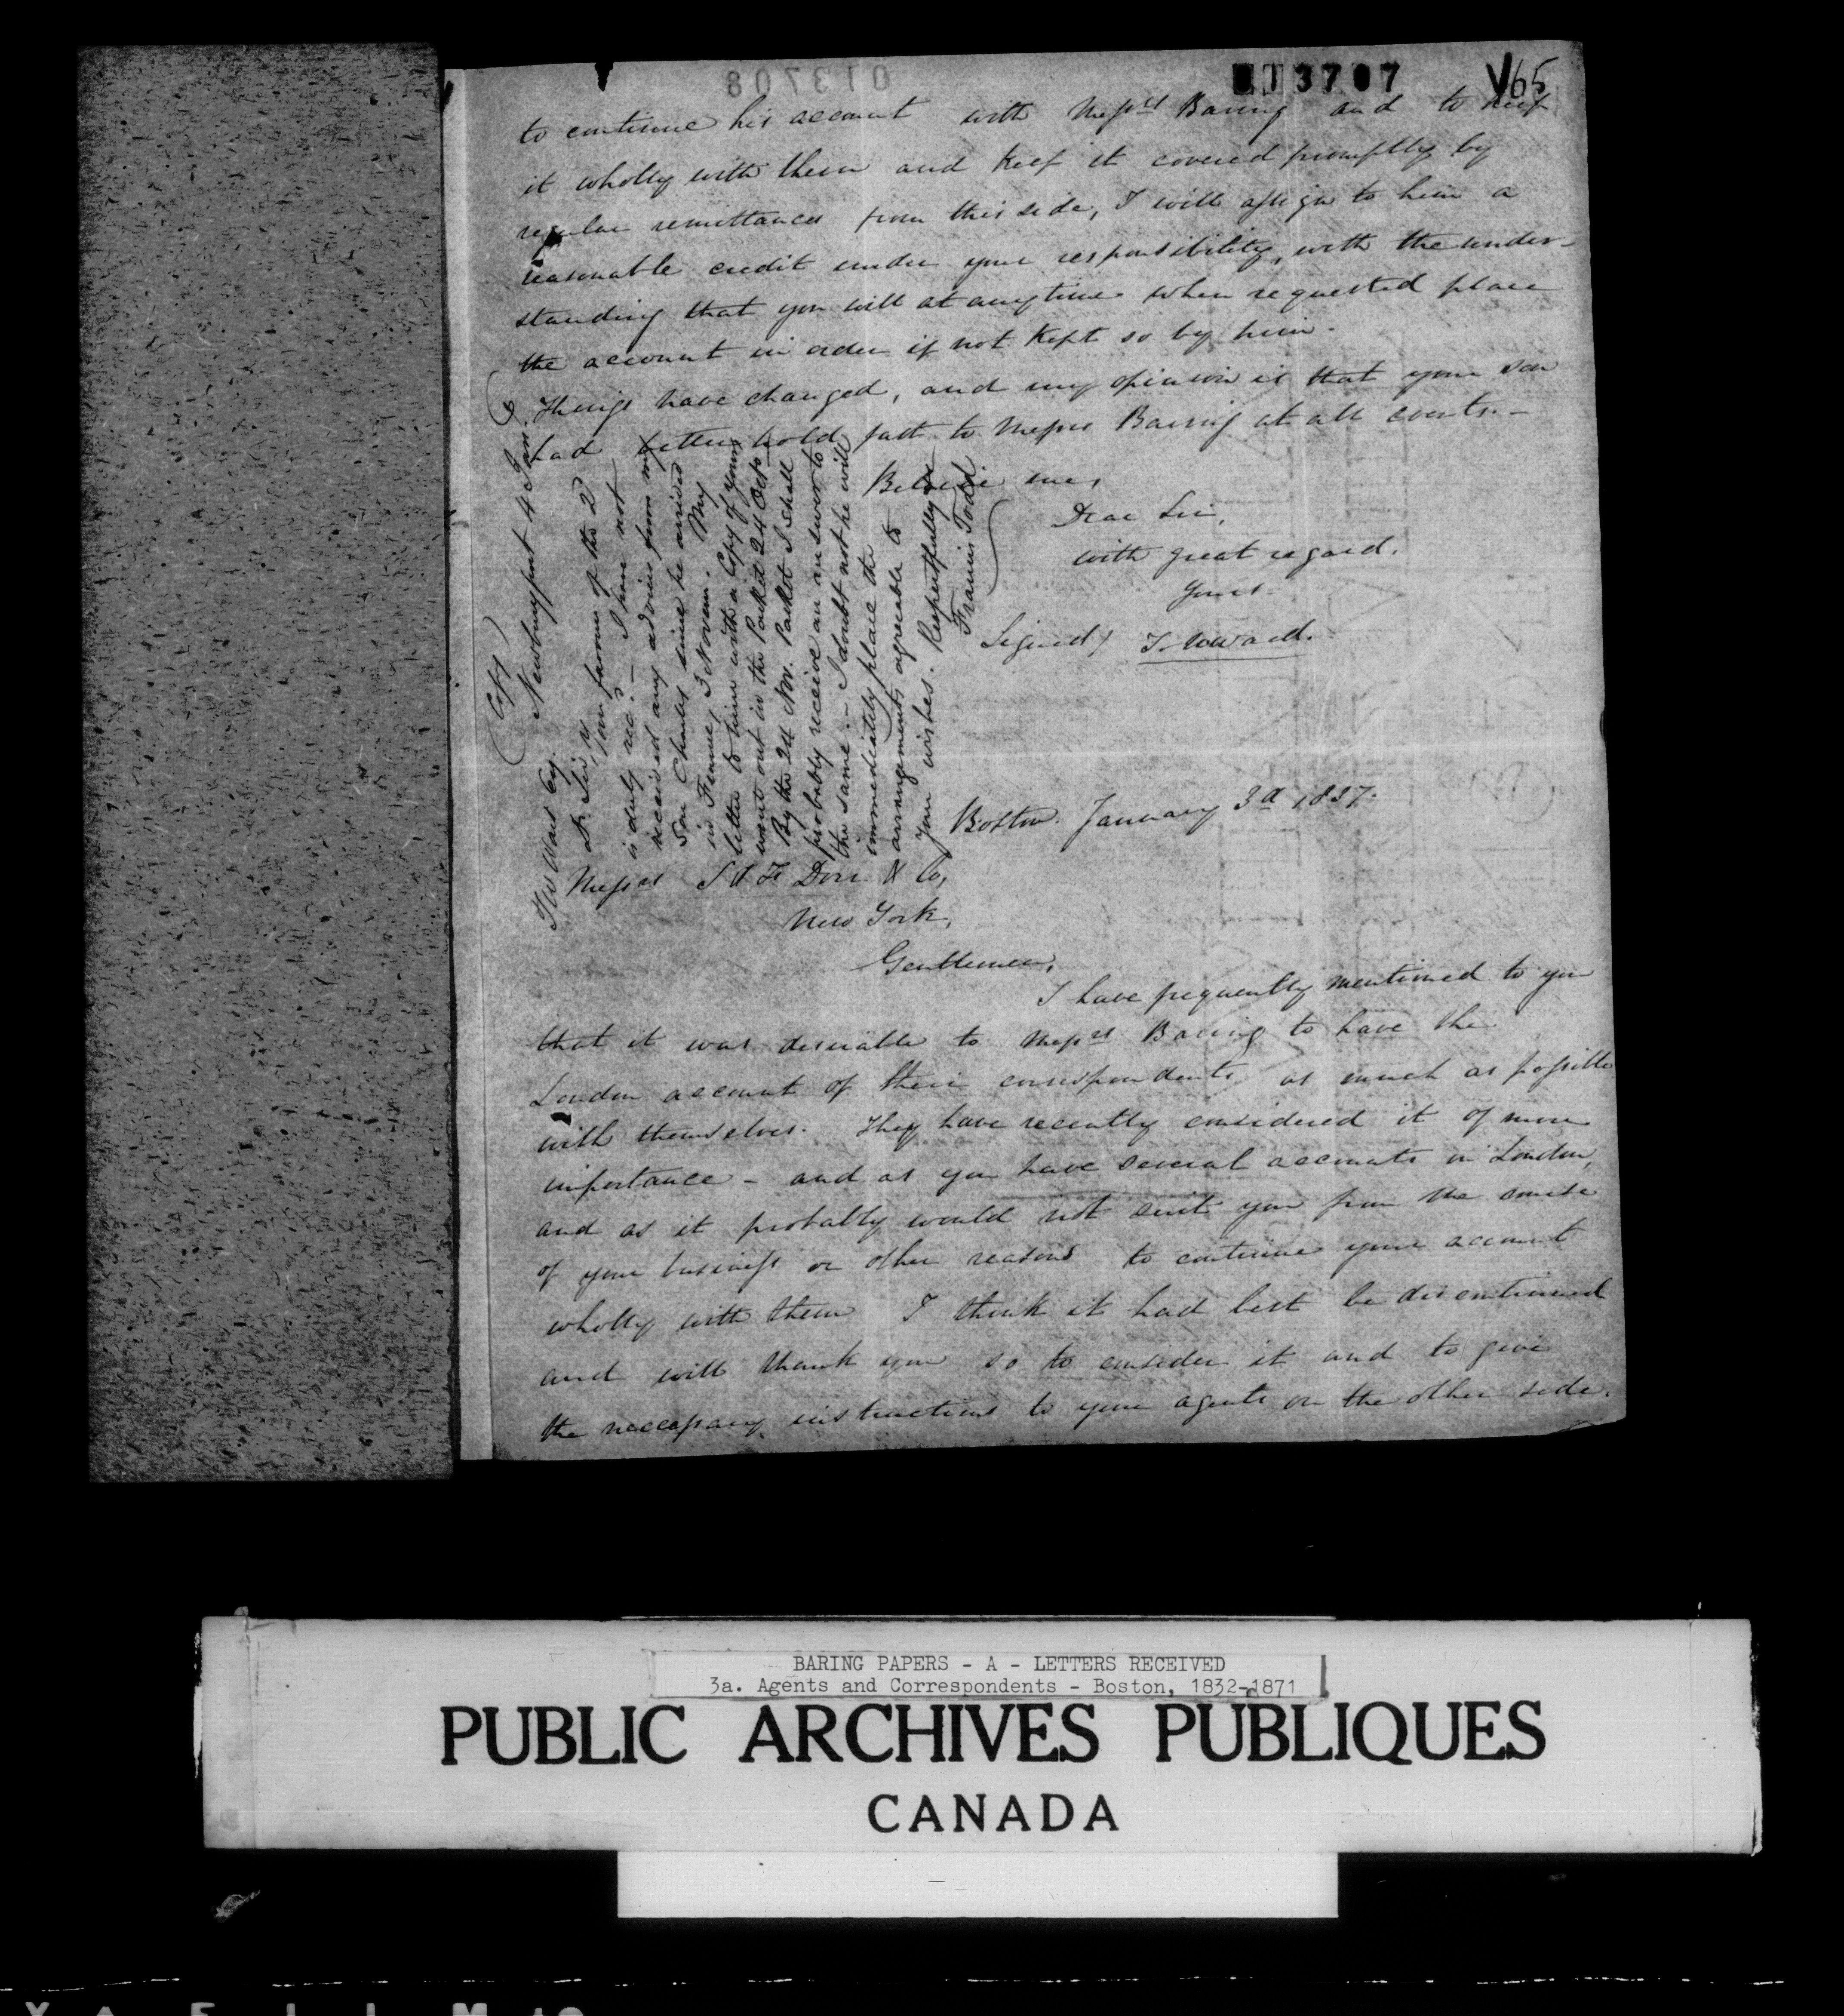 013707
165
to continue his account with Messrs Baring and to keep
it wholly with them and keep it covered promptly by
regular remittances from this side, I will assign to him a
reasonable credit under your responsibility, with the under-
standing that you will at anytime when requested place
the account in order if not kept so by him.
Things have changed, and my opinion is that your son
had better hold fast to Messrs Baring at all events.-
Believe me,
Dear Sir,
with great regard.
Yours
Signed) T. W. Ward.
(Copy) Newburyport 4 Jan.
T W Ward Esq.
Dr. Sir,
Your favour of the 2
is duly recd. - I have not
received any advice from my
Son Charles since he arrived
in France, 3 Novem. My
letter to him with a Copy of yours
went out in the Packet 24 Octo.
By the 24 Nov. Packet I shall
probably receive an answer to
the same. - I doubt not he will
immediately place the
arrangements agreeable to
your wishes. Respectfully
Francis Todd
Boston. January 3d 1837.
Messrs S & F Dorr & Co,
New York,
Gentlemen,
I have frequently mentioned to you
that it was desirable to Messrs Baring to have the
London account of their correspondents as much as possible
with themselves. They have recently considered it of more
importance - and as you have several accounts in London,
and as it probably would not suit you from the course
of your business or other reasons to continue your account
wholly with them I think it had best be discontinued
and will thank you so to consider it and to give
the neccessary instructions to your agents on the other side.
BARING PAPERS - A - LETTERS RECEIVED
3a. Agents and Correspondents - Boston, 1832-1871
PUBLIC ARCHIVES PUBLIQUES
CANADA